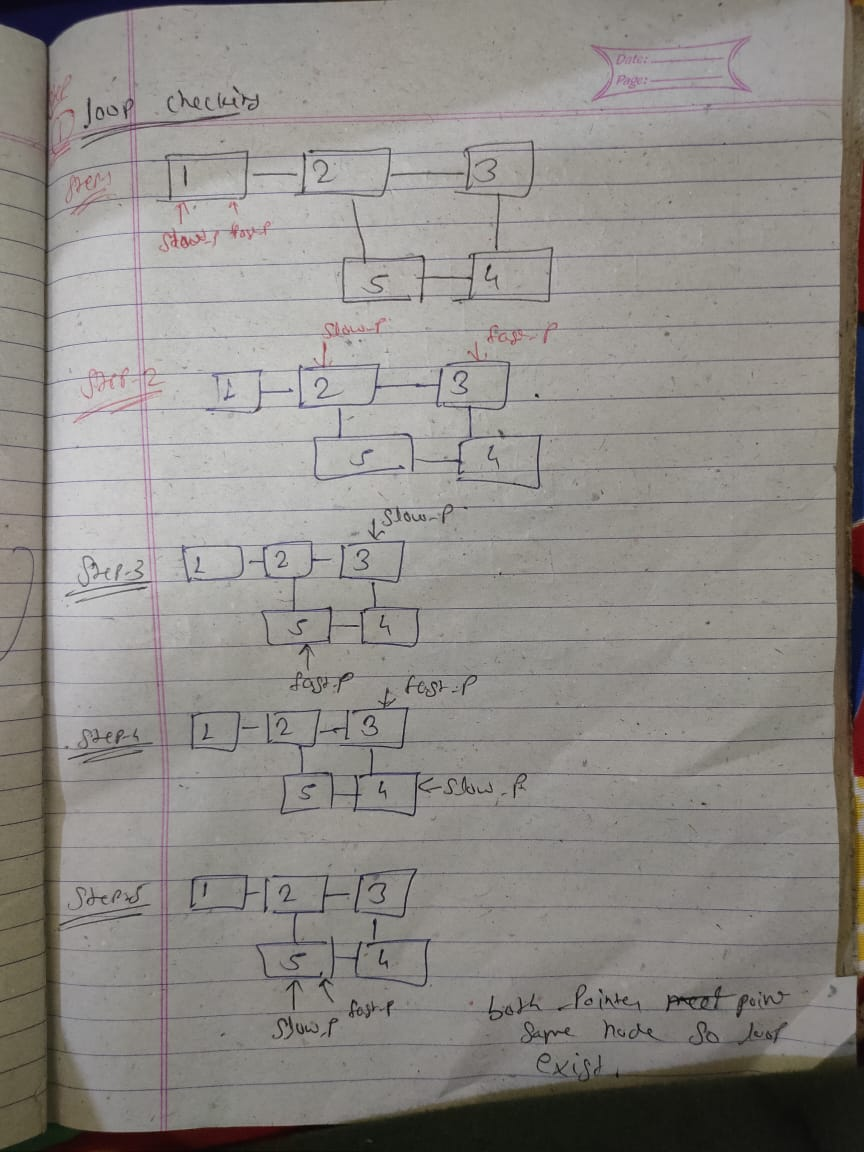 Date:
Page:
loop checking
Step1
1 2 3
Slow-P fast-P
5 4
Slow-P fast-P
Step-2
1 2 3
5 4
Slow-P
Step-3
1 2 3
5 4
fast-P
fast-P
Step-4
1 2 3
5 4 Slow-P
Step-5
1 2 3
5 4
Slow-P fast-P
both Pointer meet point
Same node So loop
exist.